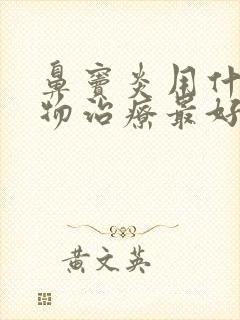 鼻窦炎用什
物治疗最好
黄文英